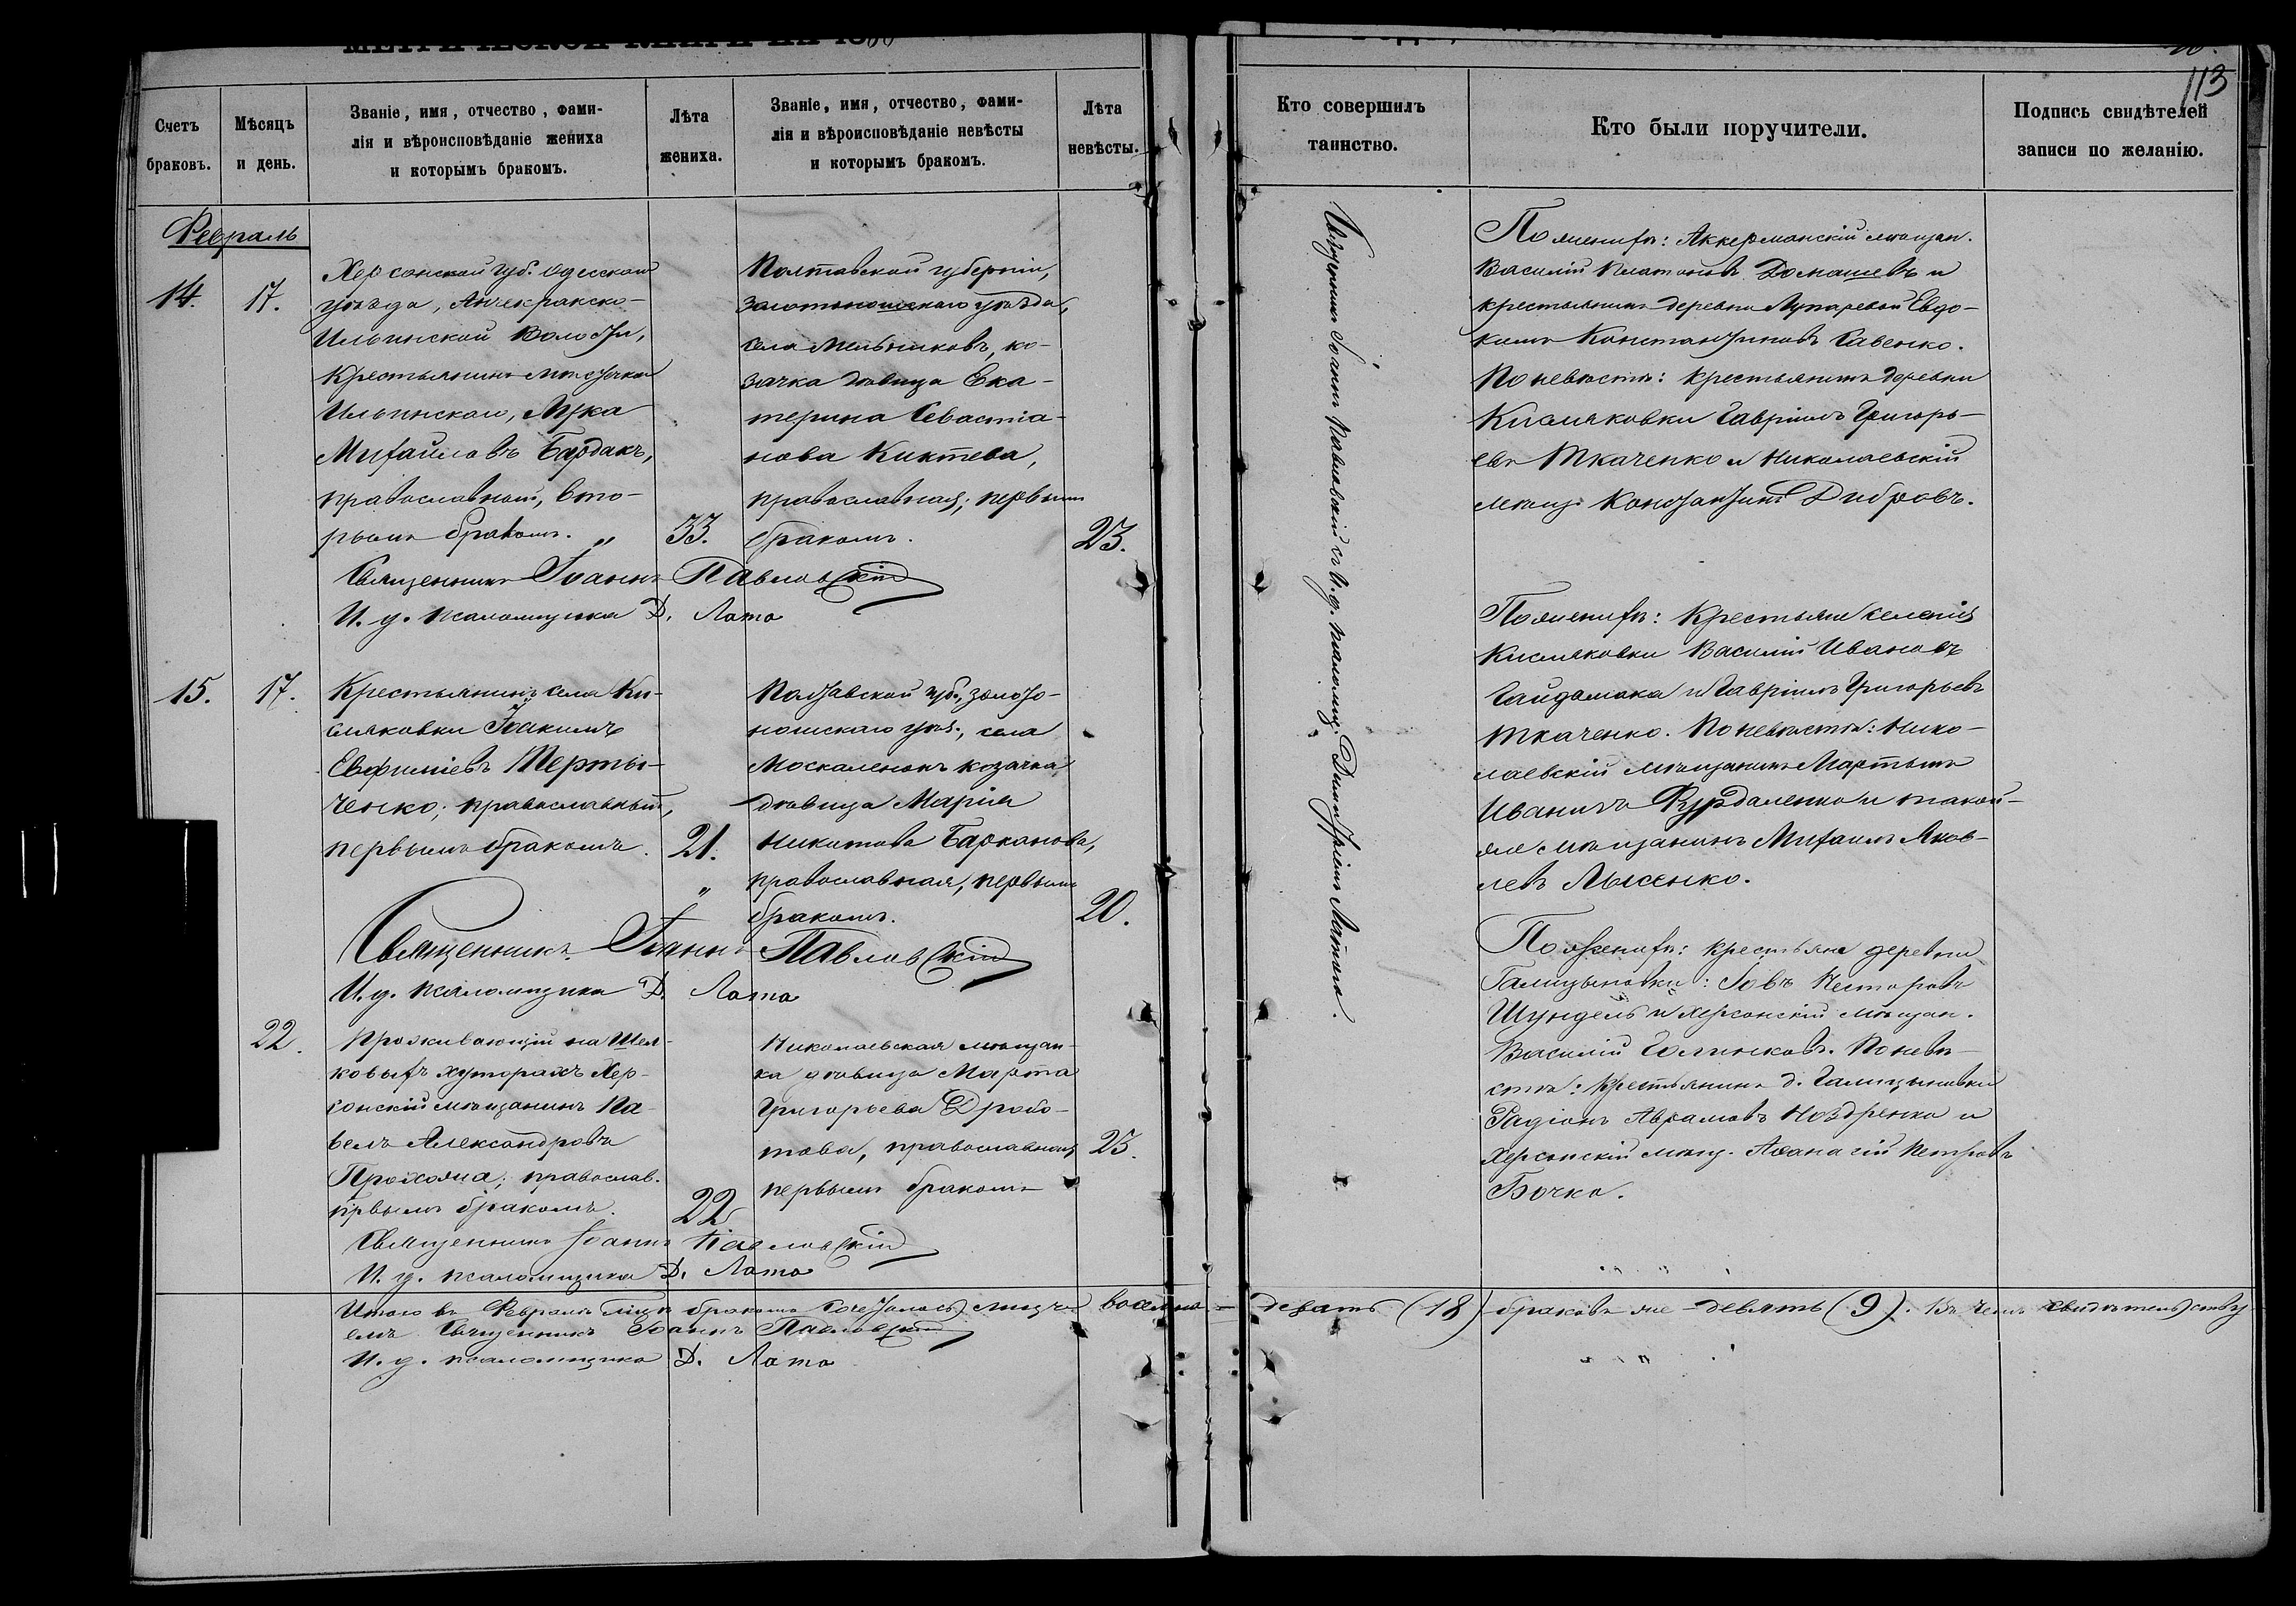 МЕТРИЧЕСКОЙ КНИГИ НА 18
113
Счетъ
браковъ.
Мѣсяцъ
и день.
Званіе, имя, отчество, фами-
лія и вѣроисповѣданіе жениха
и которымъ бракомъ.
Лѣта
жениха.
Званіе, имя, отчество, фами-
лія и вѣроисповѣданіе невѣсты
и которымъ бракомъ.
Лѣта
невѣсты.
Кто совершилъ
таинство.
Кто были поручители.
Подпись свидѣтелей
записи по желанію.
Февраль
14.
17.
Херсонской губ. Одесскаго
уѣзда, Анчекракско-
Ильинской Волости,
крестьянинъ мѣстечка
Ильинскаго, Лука
Михайловъ Бардакъ,
православный, вто-
рымъ бракомъ. „
33.
Полтавской губерніи,
Золотоношскаго уѣзда,
села Мельниковъ, ко-
зачка дѣвица Ека-
терина Севастіа-
нова Киктева,
православная, первымъ
бракомъ.
23.
Священникъ Іоаннъ Павловскій
И. д. псаломщика Д. Лата
По женихѣ: Аккерманскій мѣщан.
Василій Платоновъ Домашевъ и
крестьянинъ деревни Лупаревой Евдо-
кимъ Константиновъ Савенко.
По невѣстѣ: крестьянинъ деревни
Кисляковки Гавріилъ Григорь-
евъ Ткаченко и Николаевскій
мѣщ. Константинъ Дибровъ.
15.
17.
Крестьянинъ села Ки-
сляковки Іоакимъ
Евфиміевъ Терты-
ченко, православный,
первымъ бракомъ.
21.
„
Полтавской губ., Золото-
ношскаго уѣз., села
Москаленокъ козачка
дѣвица Марія
Никитова Барканова,
православная, первымъ
бракомъ.
20.
Священникъ Іоаннъ Павловскій
И. д. псаломщика Д. Лата
По женихѣ: Крестьяне селенія
Кисляковки Василій Ивановъ
Гайдамака и Гавріилъ Григорьевъ
Ткаченко. По невѣстѣ: Нико-
лаевскій мѣщанинъ Мартынъ
Ивановъ Фурдаленко и такой-
же мѣщанинъ Михаилъ Яков-
левъ Лысенко.
22.
Проживающій на Шел-
ковыхъ хуторахъ Хер-
сонскій мѣщанинъ Па-
велъ Александровъ
православ.
первымъ бракомъ.
22
Николаевская мѣщан-
ка дѣвица Марта
Григорьева Дробо-
това, православная,
первымъ бракомъ
23.
Священникъ Іоаннъ Павловскій
И. д. псаломщика Д. Лата
По женихѣ: крестьяне деревни
Галицыновки: Іовъ Несторовъ
Шундель и Херсонскій мѣщан.
Василій Голинковъ. По невѣ-
стѣ: крестьянинъ д. Галицыновки
Радіонъ Аврамовъ Ноздренко и
Херсонскій мѣщ. Аѳанасій Петровъ
Бочка.
Священникъ Іоаннъ Павловскій съ И. д. псаломщ. Димитріемъ Латою.
Итого въ Февралѣ м-цѣ бракомъ сочеталось лицъ восемна-дцать (18) браковъ же девять (9). Въ чемъ свидѣтельству-
емъ Священникъ Іоаннъ Павловскій
И. д. псаломщика Д. Лата